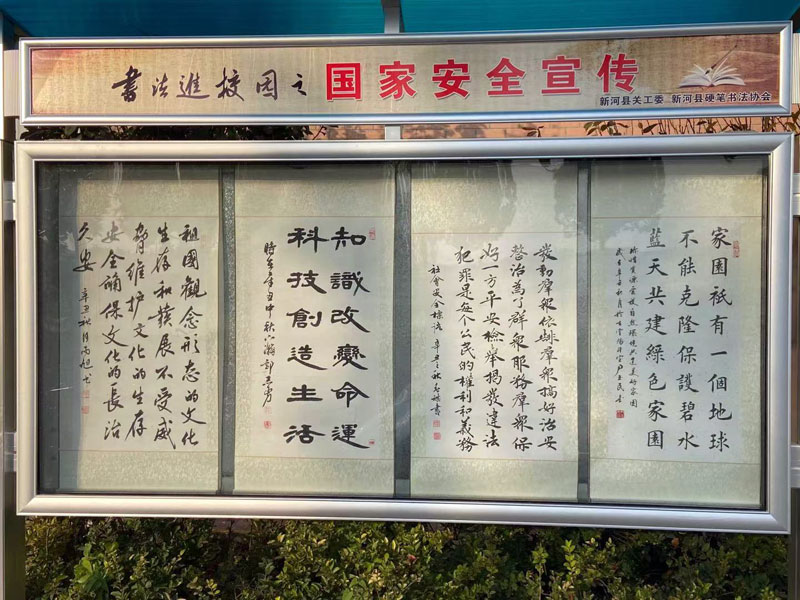 書法進校园之 国家安全宣传
新河县关工委 新河县硬笔书法协会
家園祇有一個地球
不能克隆保護碧水
藍天共建綠色家園
發動羣衆依靠羣衆搞好治安
治為了群衆服務羣衆保
好一方平安檢舉揭發違法
犯罪是每个公民的權利和義務
社會安全標語 辛丑之秋 書
知識改變命運
科技創造生活
祖國觀念形态的文化
生存和發展不受威
脅維护文化的生存
安全確保文化的長治
久安 辛丑秋月